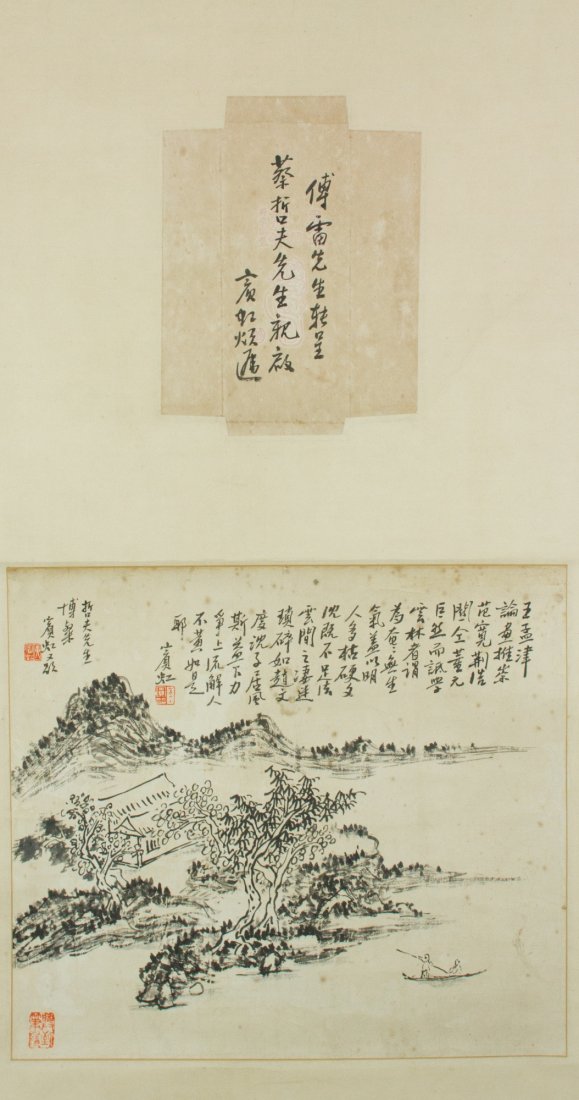 傅雷先生转呈
蔡哲夫先生親啟
賓虹煩遞
王孟津
論畫推崇
范寬荆浩
關仝董元
巨然而詆學
雲林者謂
為奄奄無生
氣蓋以明
人多枯硬文
沈既不足法
雲間之淒迷
瑣碎如趙文
度沈子居風
斯益下力
爭上流解人
不當如是
耶
賓虹
哲夫先生
博粲
賓虹又題